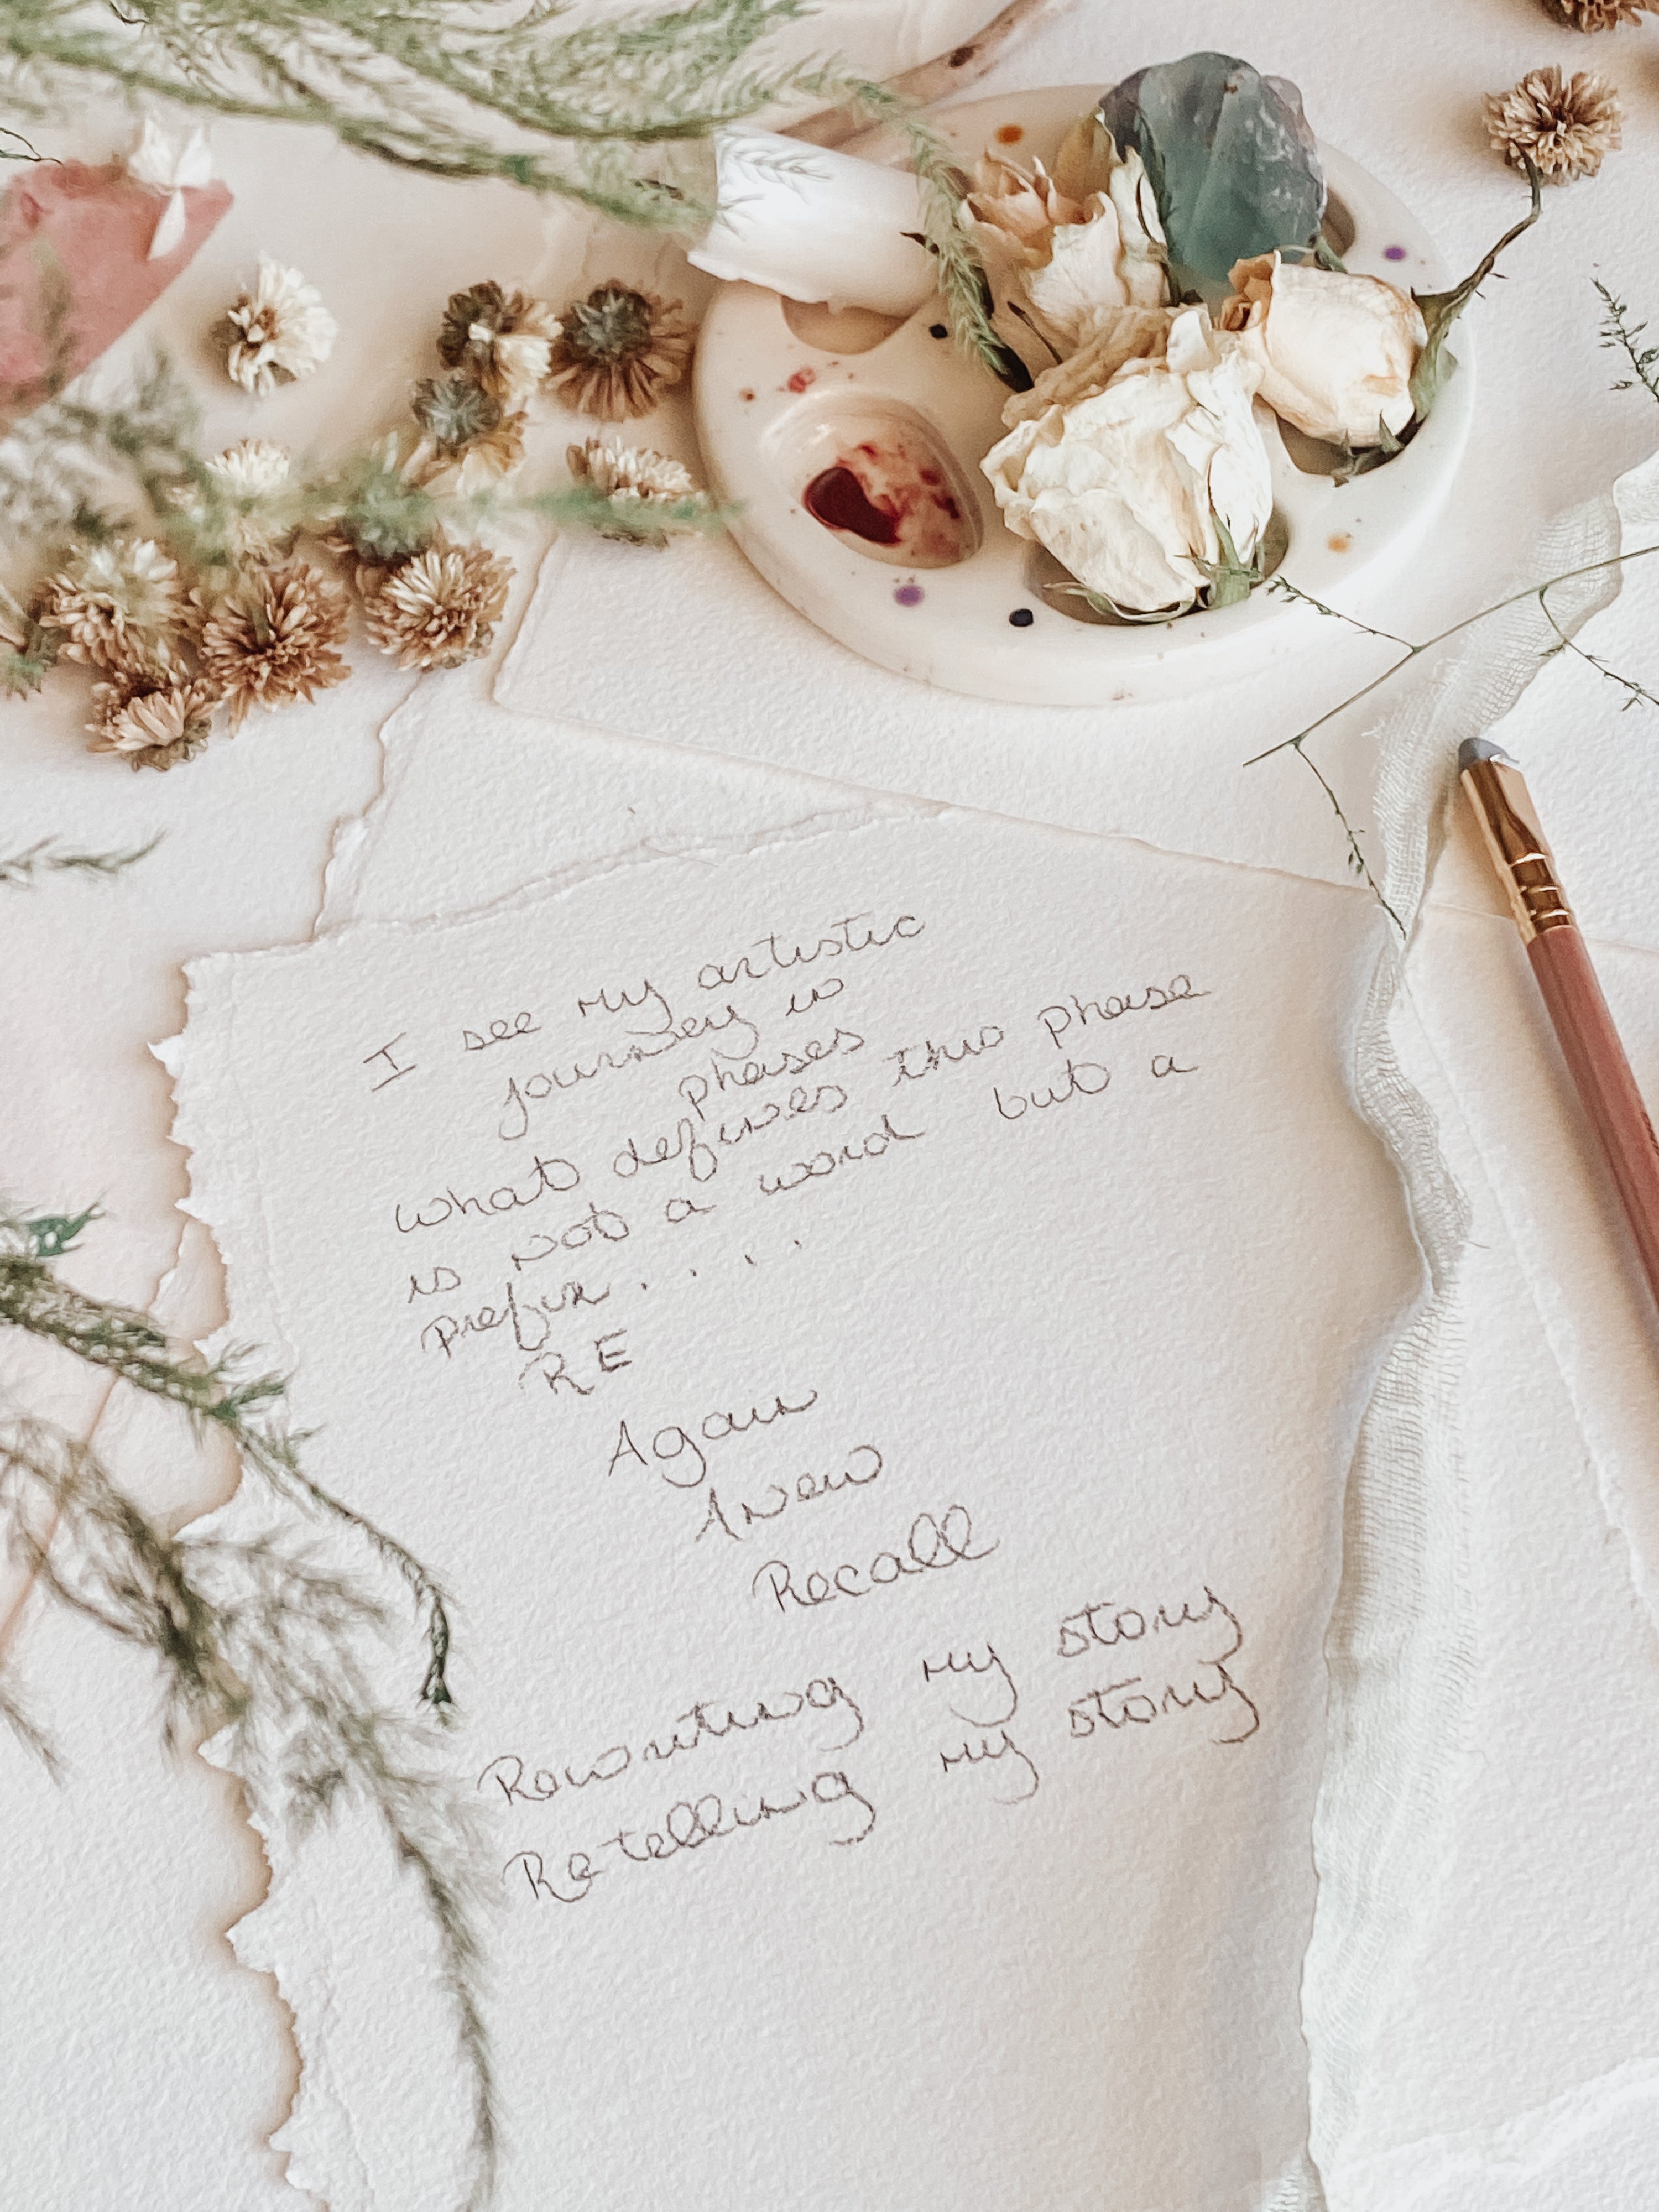 I see my artistic
journey in
phases
What defines this phase
is not a word but a
prefix . . . .
RE
Again
Anew
Recall
Rewriting my story
Retelling my story